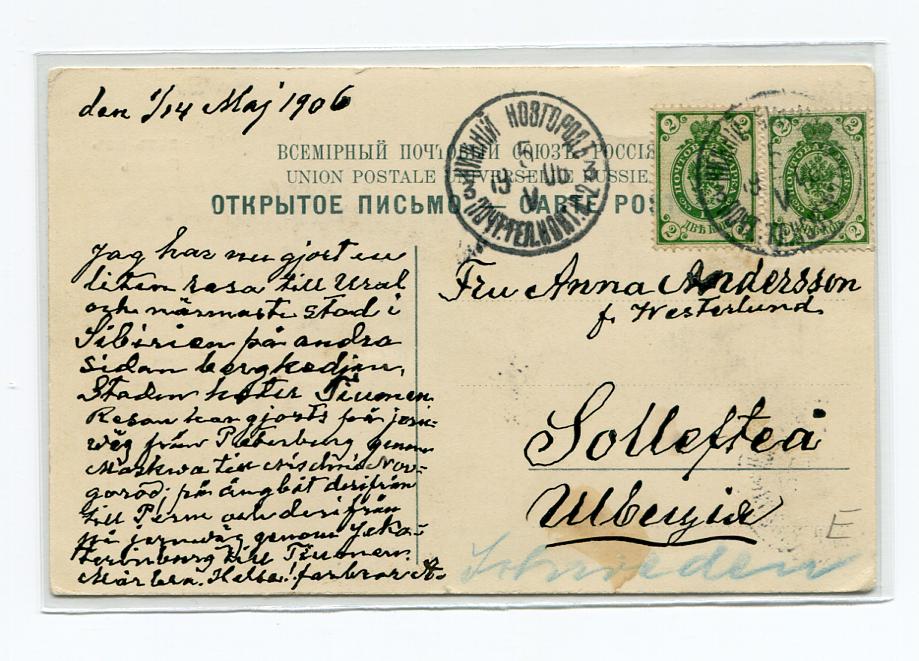 den 1/14 Maj 1906
ВСЕМІРНЫЙ ПОЧТОВЫЙ СОЮЗЪ. РОССІЯ
UNION POSTALE UNIVERSELLE. RUSSIE.
ОТКРЫТОЕ ПИСЬМО — CARTE POS
НИЖНІЙ НОВГОРОДЪ
5 V 06
19
ПОЧ.ТЕЛ.КОНТ.
2 2
2 2
2 2
2 2
Jag har nu gjort en
liten resa till Ural
och närmaste stad i
Sibirien på andra
sidan bergkedjan.
Staden heter Tiumen.
Resan har gjorts på jern-
väg från Peterburg genom
Moskwa till Nischnis Nov-
gorod, på ångbåt derifrån
till Perm och derifrån
på jernväg genom Jeka-
terinburg till Tiumen.
Helsa! farbror A-
Fru Anna Andersson
f. Westerlund
Sollefteå
Швеція
Schweden
E